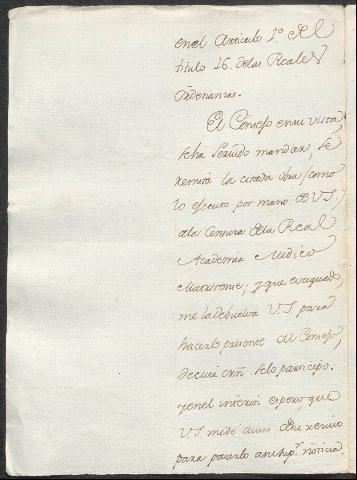 en el Articulo 1º del
titulo 16. de las Reales
Ordenanzas.
El Consejo en su vista,
se ha servido mandar, se
remita la citada obra (como
lo efecuto por mano de V.S.)
a la Censura de la Real
Academia Medico
Matritense; y que evaquado,
me la debuelva V.S. para
hacerlo presente al Consejo,
de cuia orñ. selo participo.
y en el interin espero, que
V.S. me dé aviso de su recivo
para pasarlo a su supr. noticia.